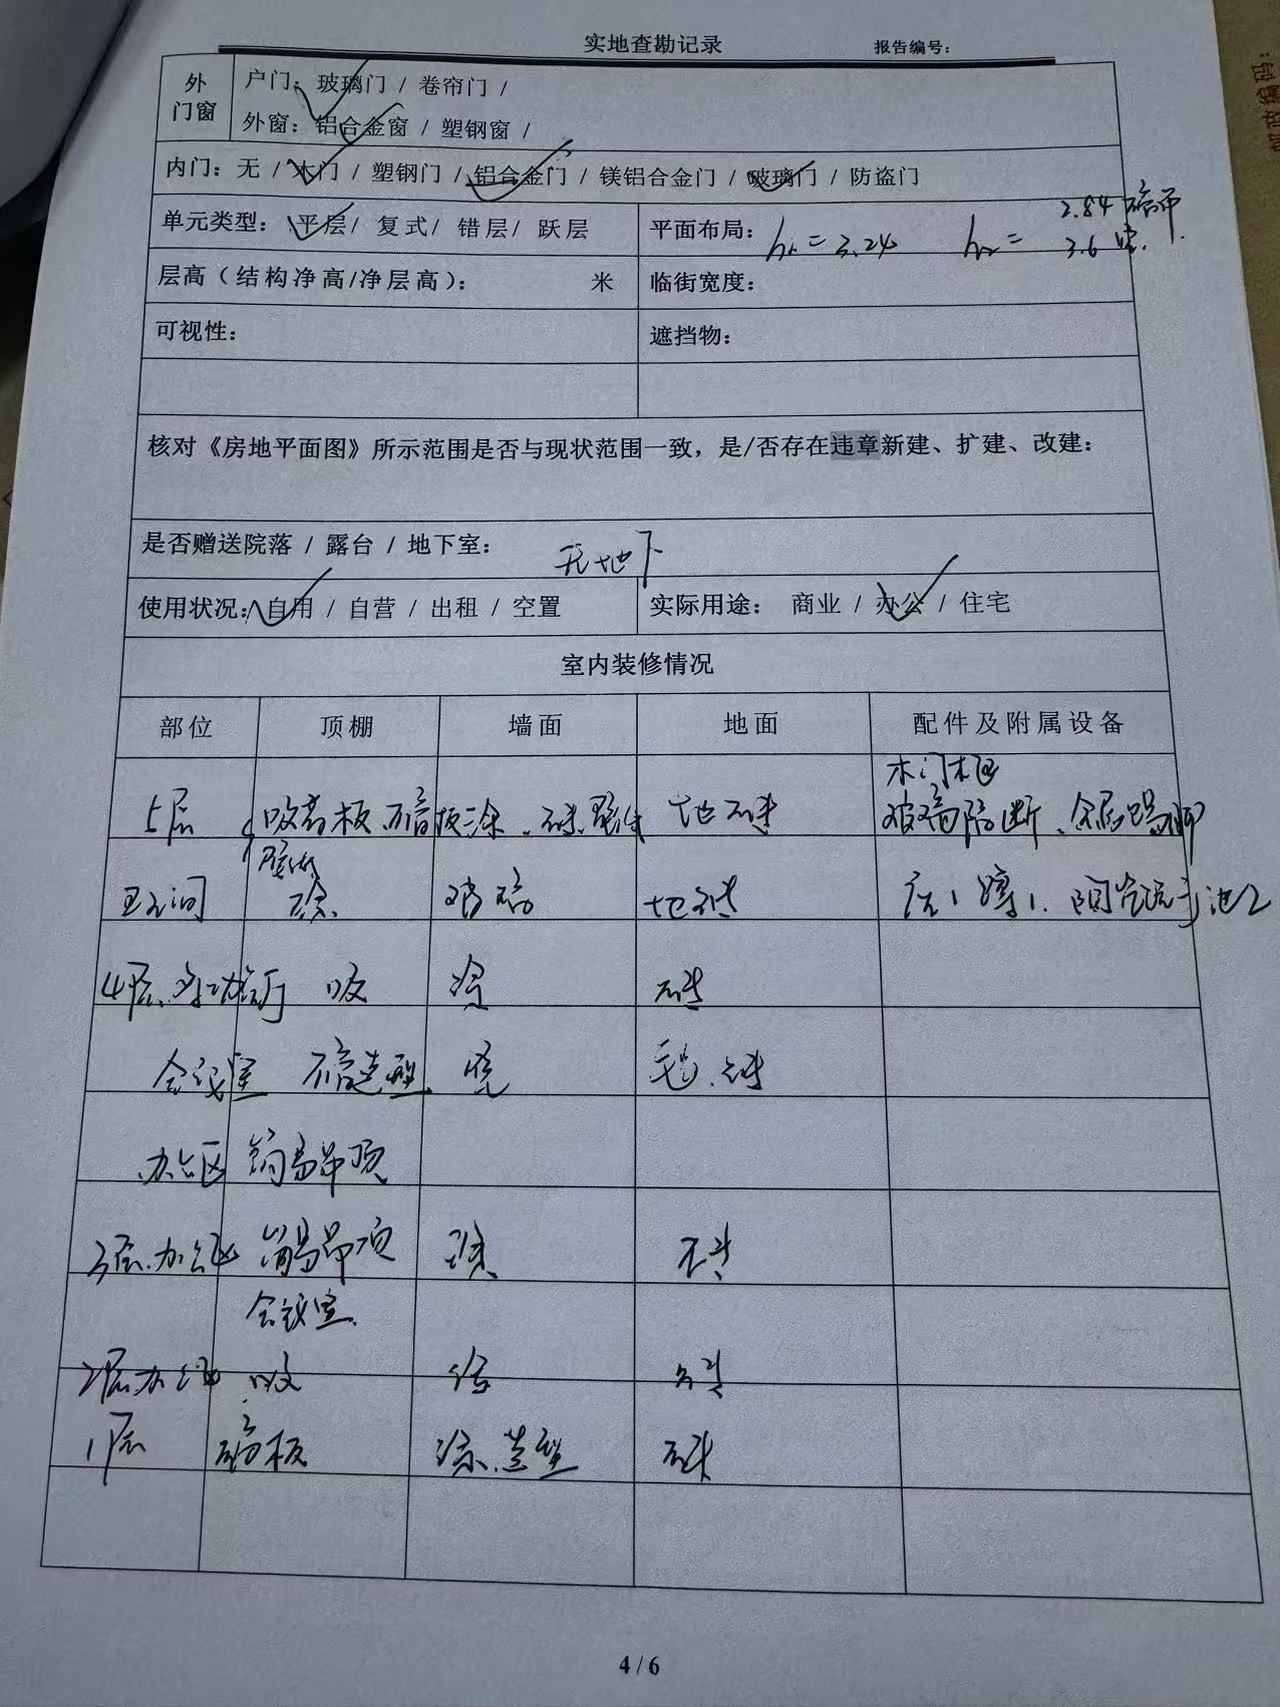 实地查勘记录 报告编号：
外门窗 户门：玻璃门 / 卷帘门 /
外窗：铝合金窗 / 塑钢窗 /
内门：无 / 木门 / 塑钢门 / 铝合金门 / 镁铝合金门 / 玻璃门 / 防盗门
单元类型：平层/ 复式/ 错层/ 跃层 平面布局： h₁=3.24 h₂= 2.84
3.6
层高（结构净高/净层高）： 米 临街宽度：
可视性： 遮挡物：
核对《房地平面图》所示范围是否与现状范围一致，是/否存在违章新建、扩建、改建：
是否赠送院落 / 露台 / 地下室： 无地下
使用状况：自用 / 自营 / 出租 / 空置 实际用途： 商业 / 办公 / 住宅
室内装修情况
部位 顶棚 墙面 地面 配件及附属设备
木门框
5层 吸音板 地砖 玻璃隔断、金属踢脚
卫生间 地砖
4层 吸 涂 砖
会议室 石膏造型 砖
办公区 简易吊顶
3层.办公区 简易吊顶 砖
会议室
2层办公区 吸 砖
1层 石膏板 涂.造型 砖
4 / 6